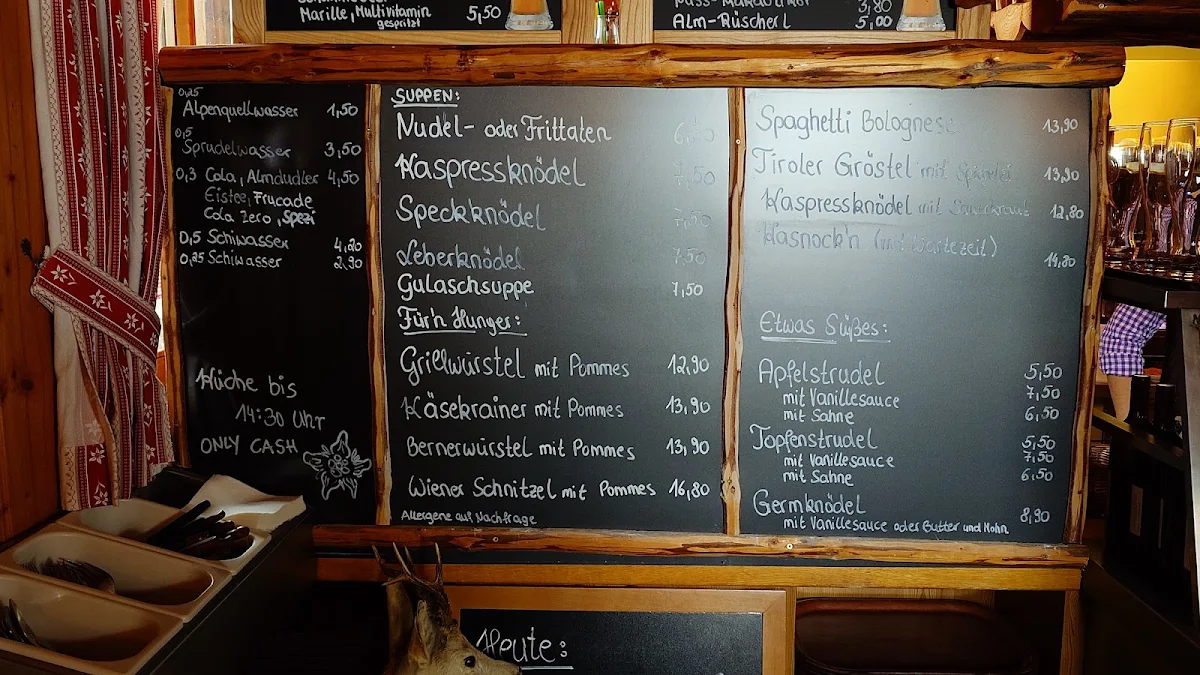 Marille, Multivitamin 5,50
gespritzt
3,80
Alm-Rüscherl 5,00
0,25
Alpenquellwasser 1,50
0,5
Sprudelwasser 3,50
0,3 Cola, Almdudler 4,50
Eistee, Frucade
Cola Zero, Spezi
0,5 Schiwasser 4,20
0,25 Schiwasser 2,90
Küche bis
14:30 Uhr
ONLY CASH
SUPPEN:
Nudel- oder Frittaten 6,50
Kaspressknödel 7,50
Speckknödel 7,50
Leberknödel 7,50
Gulaschsuppe 7,50
Für'n Hunger:
Grillwürstel mit Pommes 12,90
Käsekrainer mit Pommes 13,90
Bernerwürstel mit Pommes 13,90
Wiener Schnitzel mit Pommes 16,80
Allergene auf Nachfrage
Spaghetti Bolognese 13,90
Tiroler Gröstel mit 13,90
Kaspressknödel mit Sauerkraut 12,80
Kasnock'n (mit Wartezeit) 14,80
Etwas Süßes:
Apfelstrudel 5,50
mit Vanillesauce 7,50
mit Sahne 6,50
Topfenstrudel 5,50
mit Vanillesauce 7,50
mit Sahne 6,50
Germknödel 8,90
mit Vanillesauce oder Butter und Mohn
Heute: